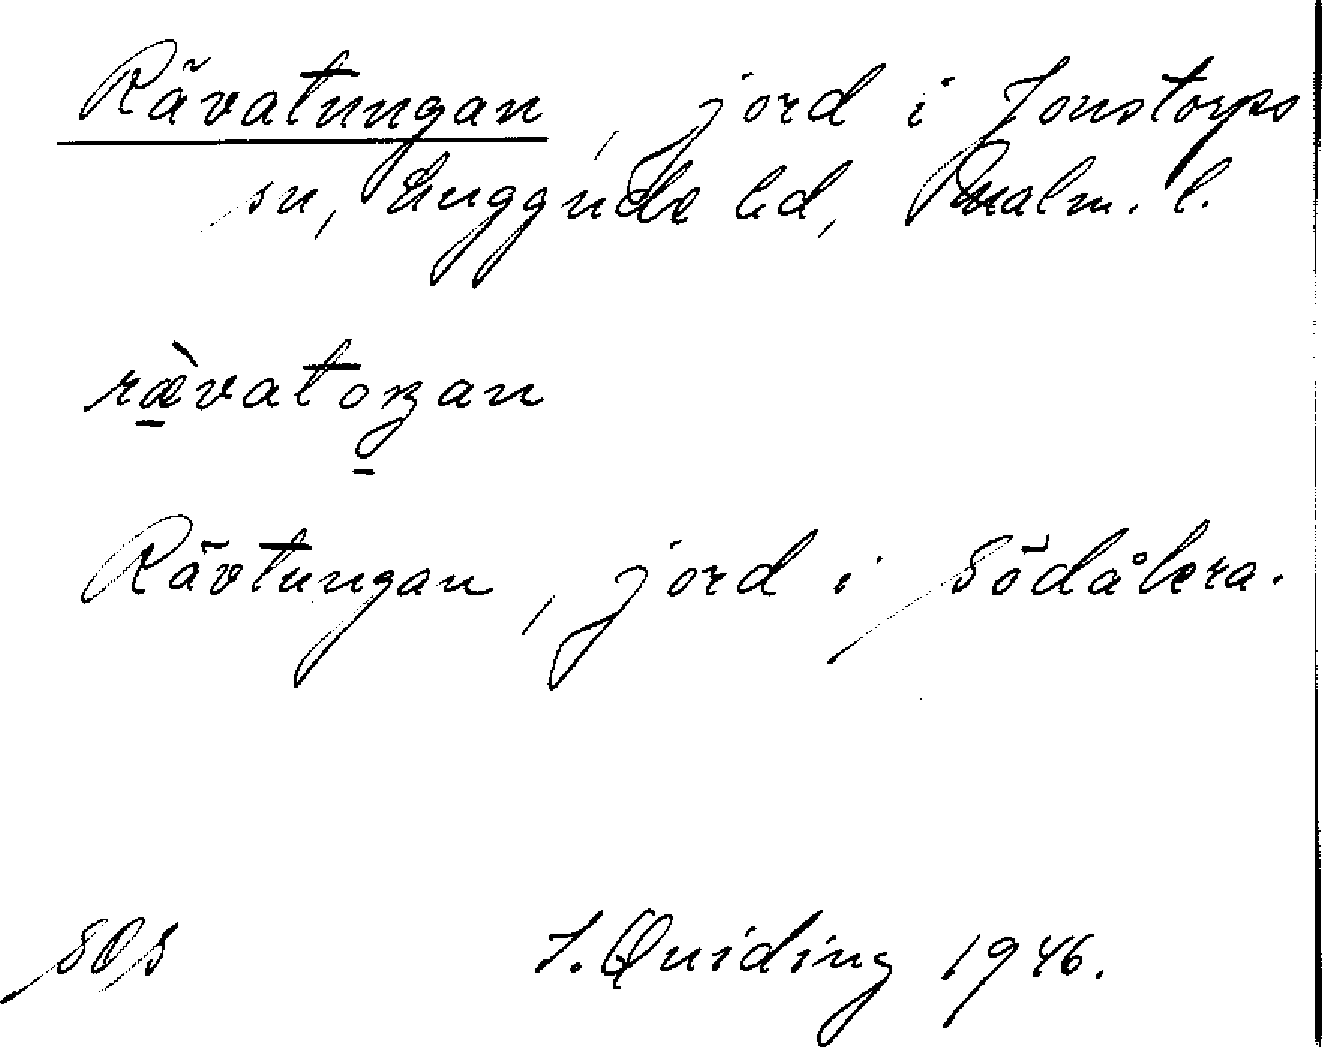 Rävatungan, jord i Jonstorps
sn, Luggude hd, Malm. l.
rævatoŋan
Rävtungan, jord i Södåkra.
SOS J. Quiding 1946.